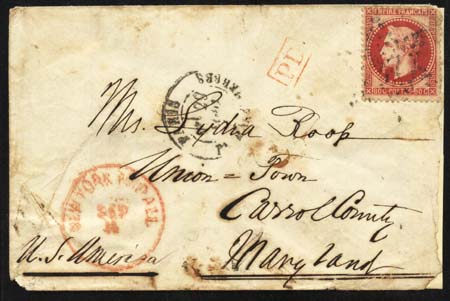 EMPIRE FRANÇAIS
PD
Ms. Lydia Roop
Union = Town
Carrol County
Maryland
U.S. America
NEW YORK PAID ALL
SEP
PARIS